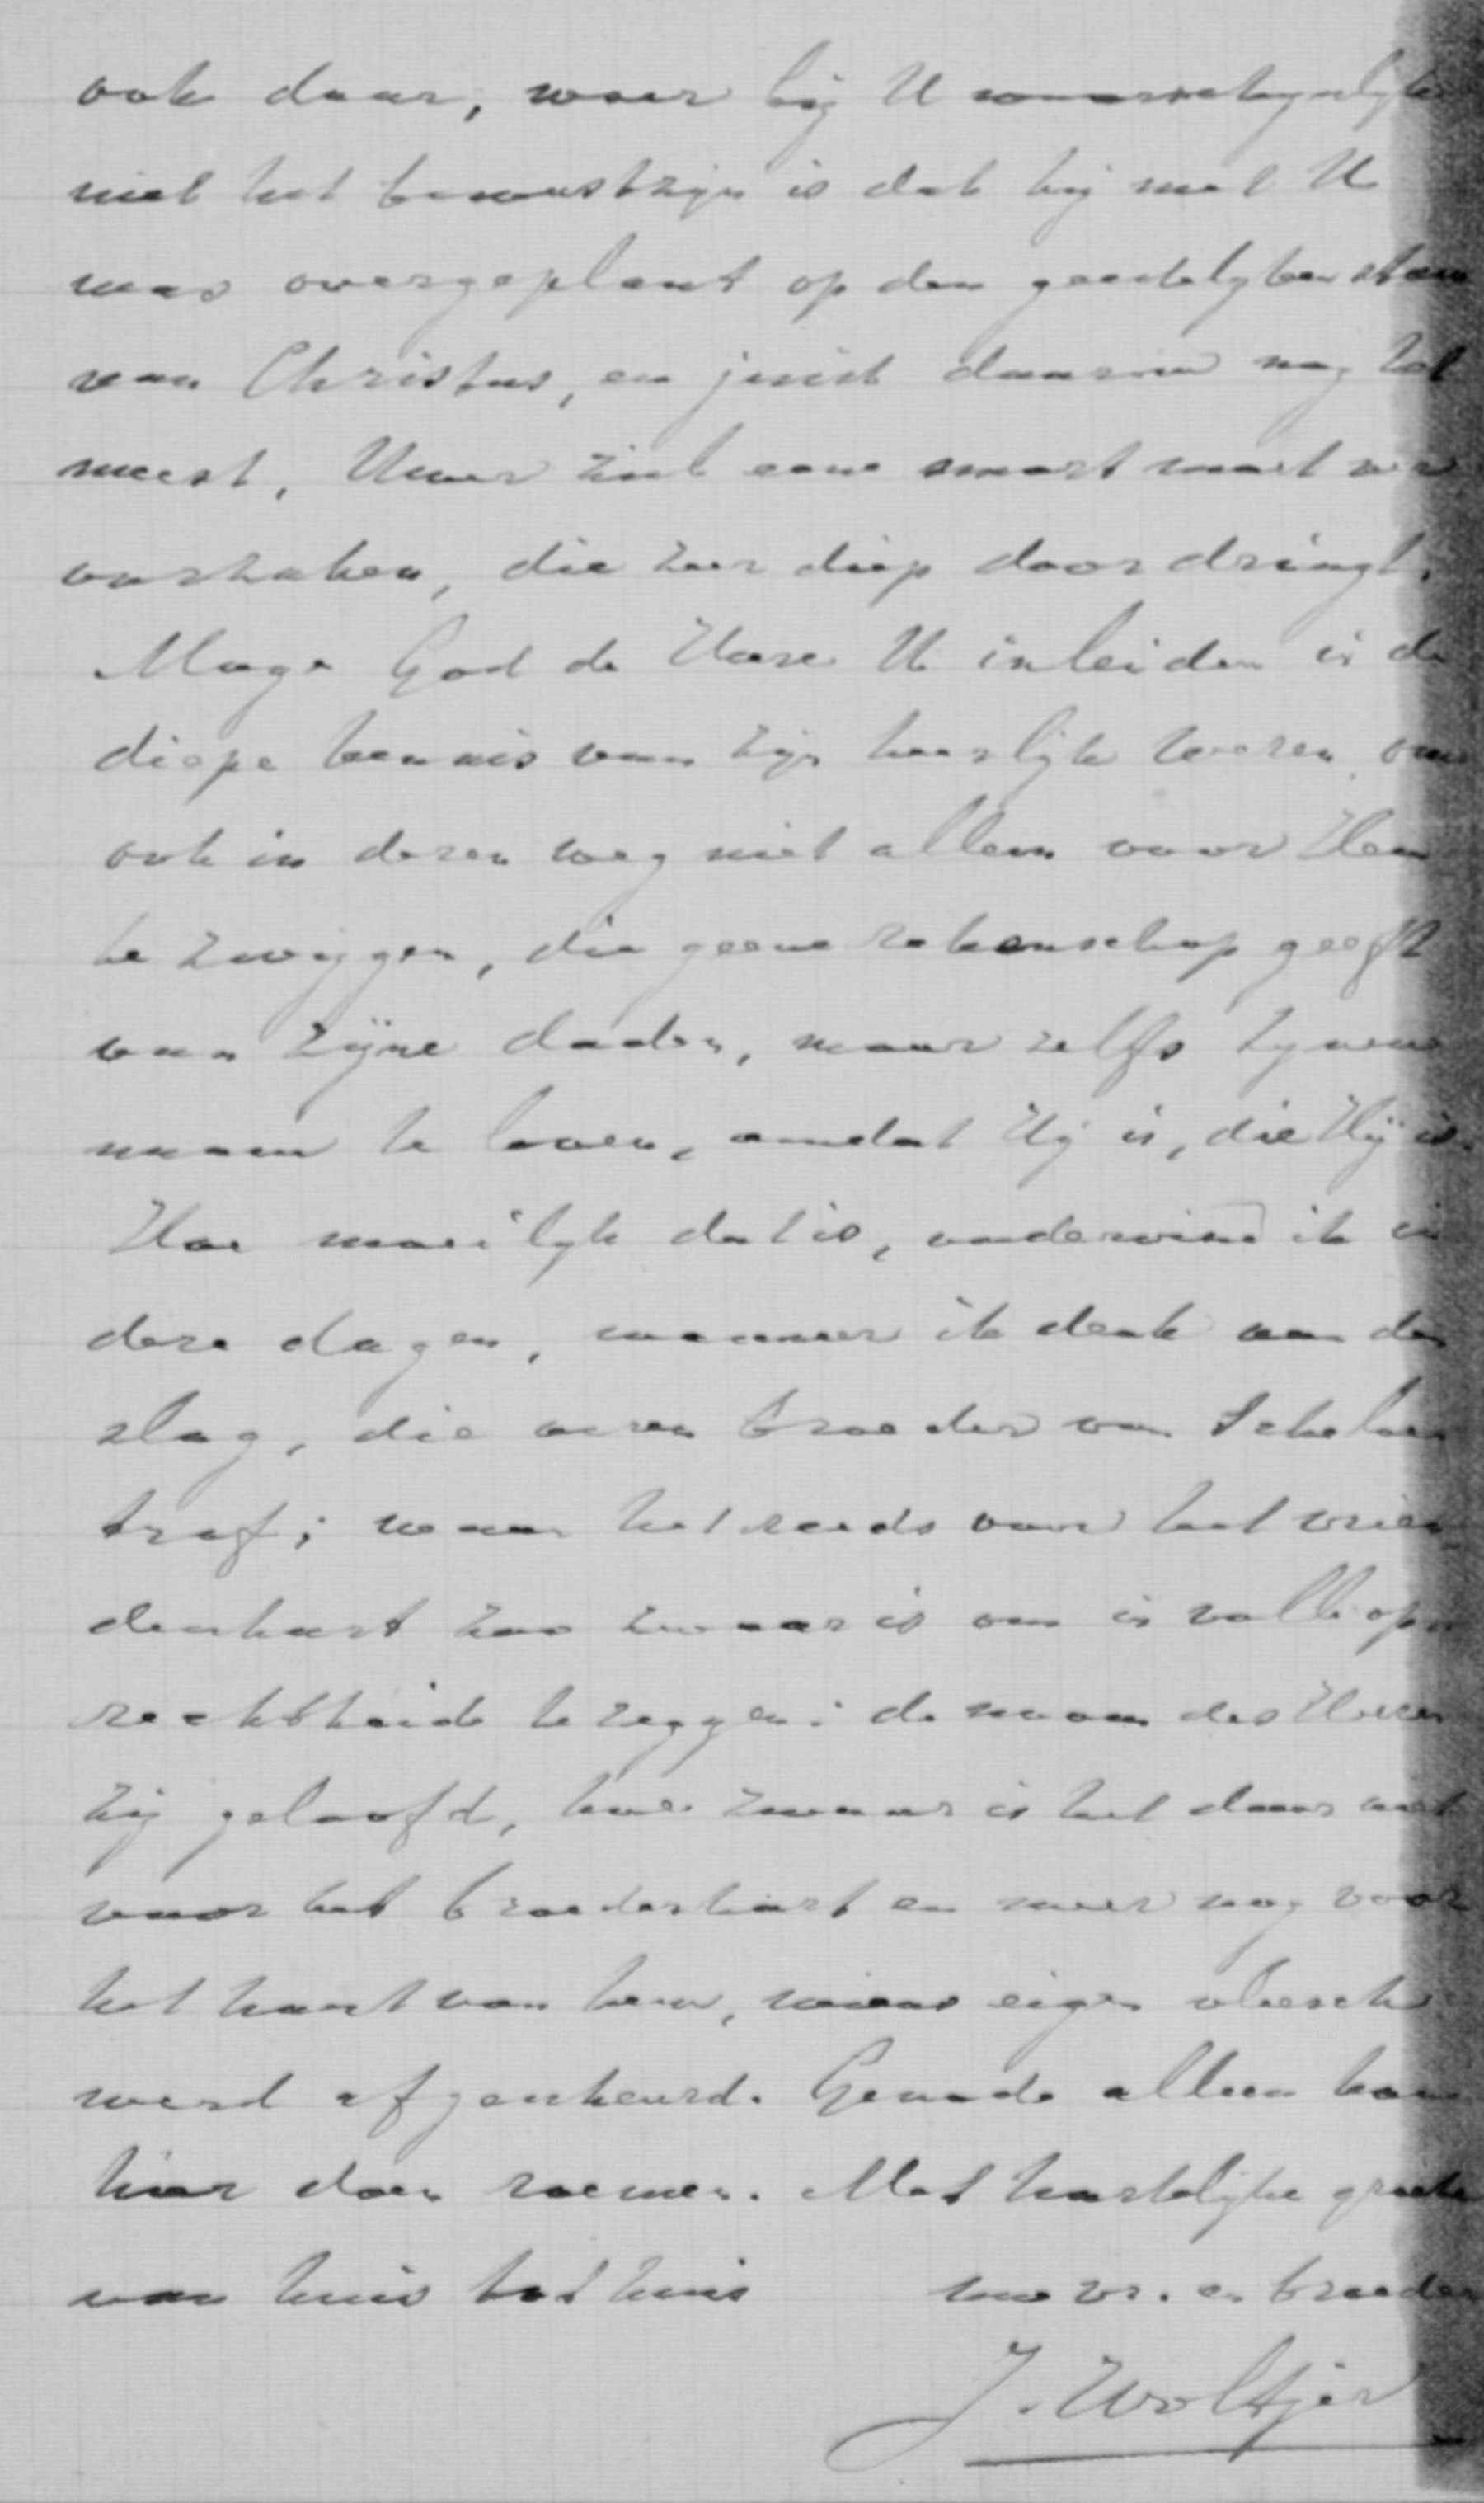 ook daar, waar bij U waarschijnlijk
niet het bewustzijn is dat hij met U
was overgeplant op den geestelyken stam
van Christus, en juist daarom nog het
meest, Uwer ziel eene smart moet ver
oorzaken, die zeer diep doordringt.
Moge God de Heere U inleiden in de
diepe kennis van zijn heerlijk wezen, om
ook in dezen weg niet alleen voor Hem
te zwijgen, die geene rekenschap geeft
van zijne daden, maar zelfs zynen
naam te loven, omdat Hij is, die Hij is.
Hoe moeilyk dat is, ondervind ik in
deze dagen, wanneer ik denk aan den
slag, die onzen broeder van Schelven
trof; waar het reeds voor het vrien
denhart zoo zwaar is om in volle op
rechtheid te zeggen: de naam des Heeren
zij geloofd, hoe zwaar is het dan niet
voor het broederhart en meer nog voor
het hart van hem, wiens eigen vleesch
werd afgescheurd. Genade alleen kan
hier doen roemen. Met hartelijke groete
van huis tot huis uw vr. en broeder
J. Woltjer